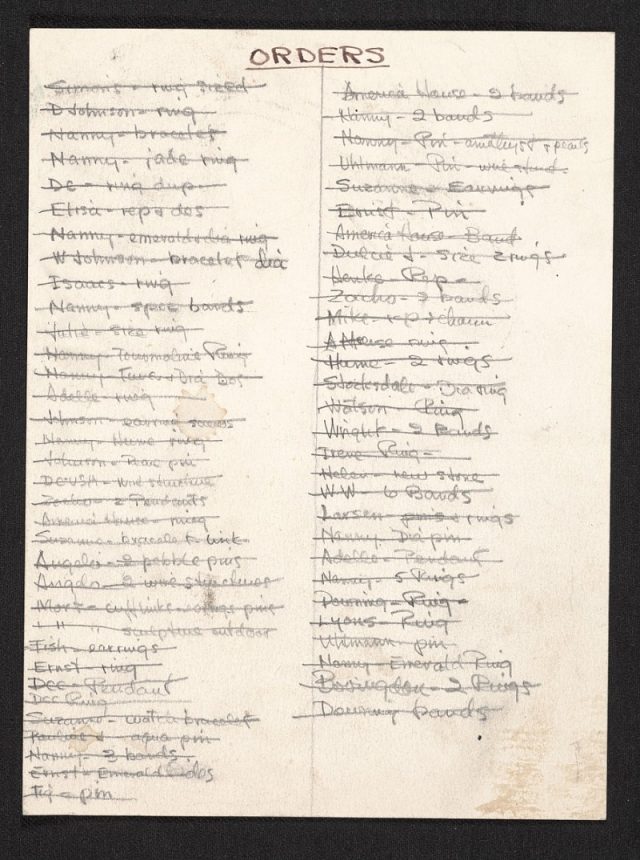 ORDERS
Simons - ring sized
D Johnson - ring
Nanny - bracelet
Nanny - jade ring
De - ring dup.
Elisa - rep + dos
Nanny - emeralds dia ring
W Johnson - bracelet dia
Isaacs - ring
Nanny - spec bands
Julie - size ring
Nanny - Tourmaline Ring
Nanny - Dia Dos
Adelle - ring
earring screws
Nanny - Hume ring
Johnson - pin
DCUSA - wire structure
Zacho - 2 Pendants
America House - ring
Suzanne - bracelet link
Angelo - 2 pebble pins
Angelo - 2 wire structures
cufflinks - earrings pins
" " sculpture outdoor
Fish - earrings
Ernst - ring
Dec - Pendant
Dec Ring
Suzanne - watch bracelet
Pauline J - aqua pin
Nanny - 3 bands
Ernst - Emerald dos
pin
America House - 2 bands
Nanny - 2 bands
Nanny - Pin - amethyst + pearls
Uhlmann - Pin - wire
Suzanne - Earrings
Ernst - Pin
America House - Band
Dulcie J - size 2 rings
Henke - Rep -
Zacho - 2 bands
Mike - rep + chain
A House ring
Hume - 2 rings
Stocksdale - Dia ring
Watson - Ring
Wright - 2 Bands
Irene Ring -
Helen - new stone
WW - 6 Bands
Larsen - pins + rings
Nanny - Dia pin
Adelle - Pendant
Nanny - 5 Rings
Downing - Ring -
Lyons - Ring
Uhlmann - pin
Nanny - Emerald Ring
2 Rings
Downing bands